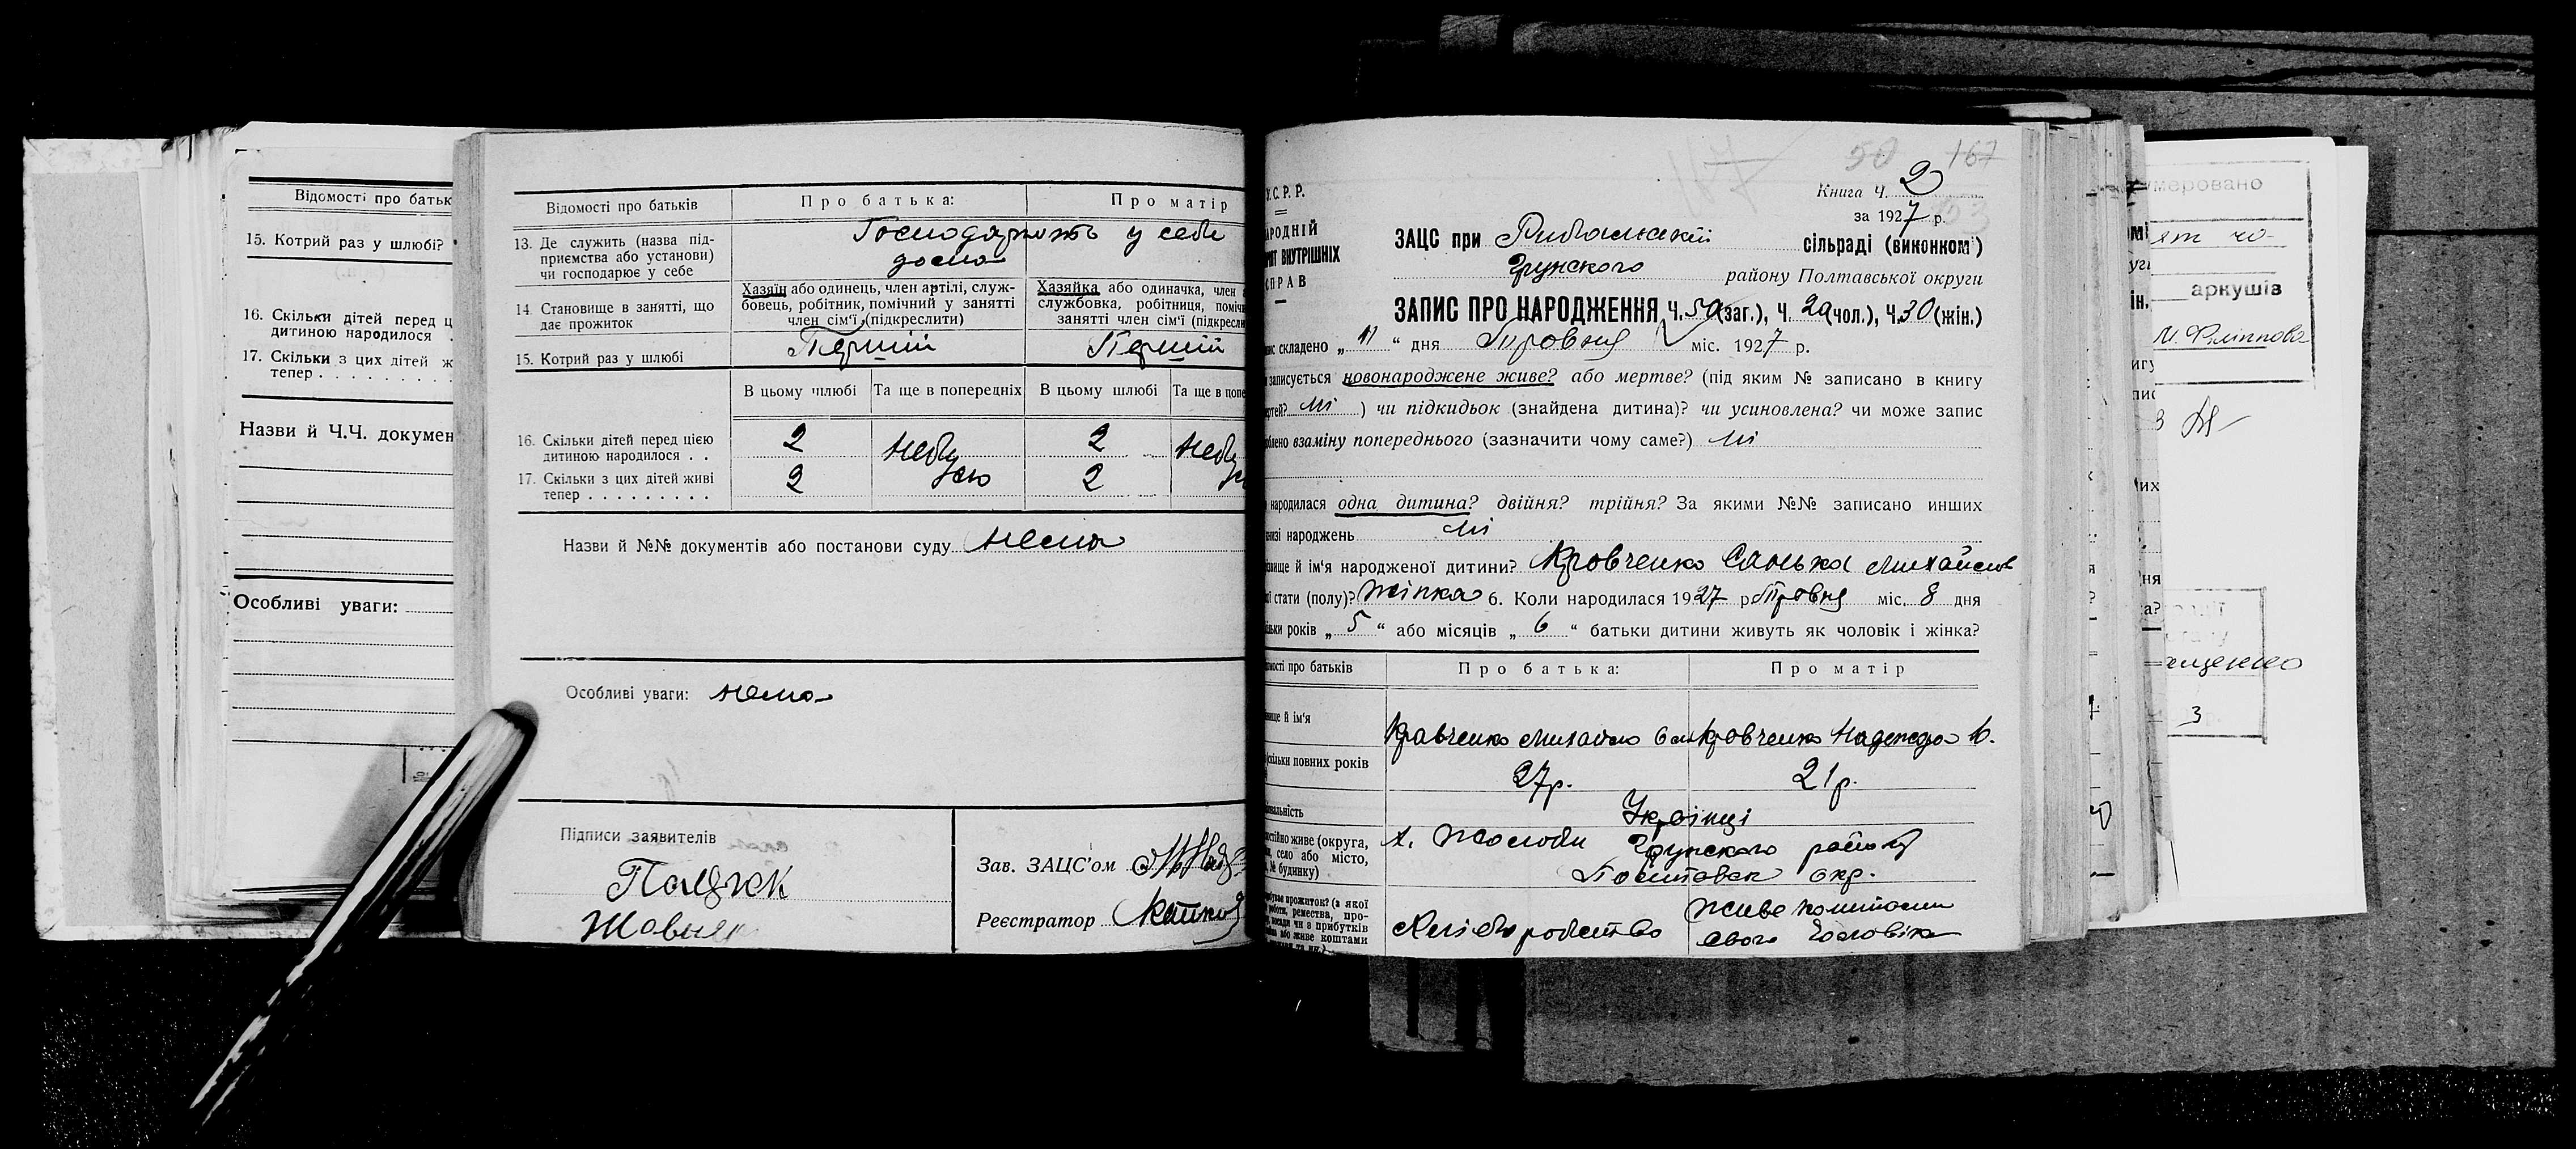 Відомості про батьк
15. Котрий раз у шлюбі?
16. Скільки дітей перед ц
дитиною народилося .
17. Скільки з цих дітей ж
тепер . . . . . . . . .
Назви й Ч.Ч. докумен
Особливі уваги:
Відомості про батьків
Про батька:
Про матір
13. Де служить (назва під-
приємства або установи)
чи господарює у себе
Господарюють у себе
дома
14. Становище в занятті, що
дає прожиток
Хазяїн або одинець, член артілі, служ-
бовець, робітник, помічний у занятті
член сім'ї (підкреслити)
Хазяйка або одиначка, член
службовка, робітниця, поміч
занятті член сім'ї (підкресли
15. Котрий раз у шлюбі
Перший
Перший
В цьому шлюбі
Та ще в попередніх
В цьому шлюбі
Та ще в попе
16. Скільки дітей перед цією
дитиною народилося . .
2
небу
2
небу
17. Скільки з цих дітей живі
тепер . . . . . . . . .
2
2
Назви й №№ документів або постанови суду нема
Особливі уваги: нема
Підписи заявителів
Зав. ЗАЦС'ом
Реєстратор
50 167
У.С.Р.Р.
Книга Ч. 2
за 1927 р.
АРОДНІЙ
ВНУТРІШНІХ
СПРАВ
ЗАЦС при сільраді (виконком)
Грунского району Полтавської округи
ЗАПИС ПРО НАРОДЖЕННЯ Ч. 59 (заг.), Ч. 29 (чол.), Ч. 30 (жін.)
складено „ 11 “ дня Травня міс. 1927 р.
записується новонароджене живе? або мертве? (під яким № записано в книгу
ні ) чи підкидьок (знайдена дитина)? чи усиновлена? чи може запис
взаміну попереднього (зазначити чому саме?) ні
народилася одна дитина? двійня? трійня? За якими №№ записано инших
народжень ні
й ім'я народженої дитини? Кравченко
стати (полу)? Жінка 6. Коли народилася 1927 р. Травня міс. 8 дня
років „ 5 “ або місяців „ 6 “ батьки дитини живуть як чоловік і жінка?
про батьків
Про батька:
Про матір
й ім'я
Кравченко Михайло
Кравченко Надежда
повних років
27р.
21р.
Украінці
живе (округа,
село або місто,
№ будинку)
х. Грунского району
Полтавск окр.
прожиток? (з якої
роботи, ремества, про-
чи в прибутків
або живе коштами
Хліборобство
Живе коштами
свого чоловіка
умеровано
аркушів
3